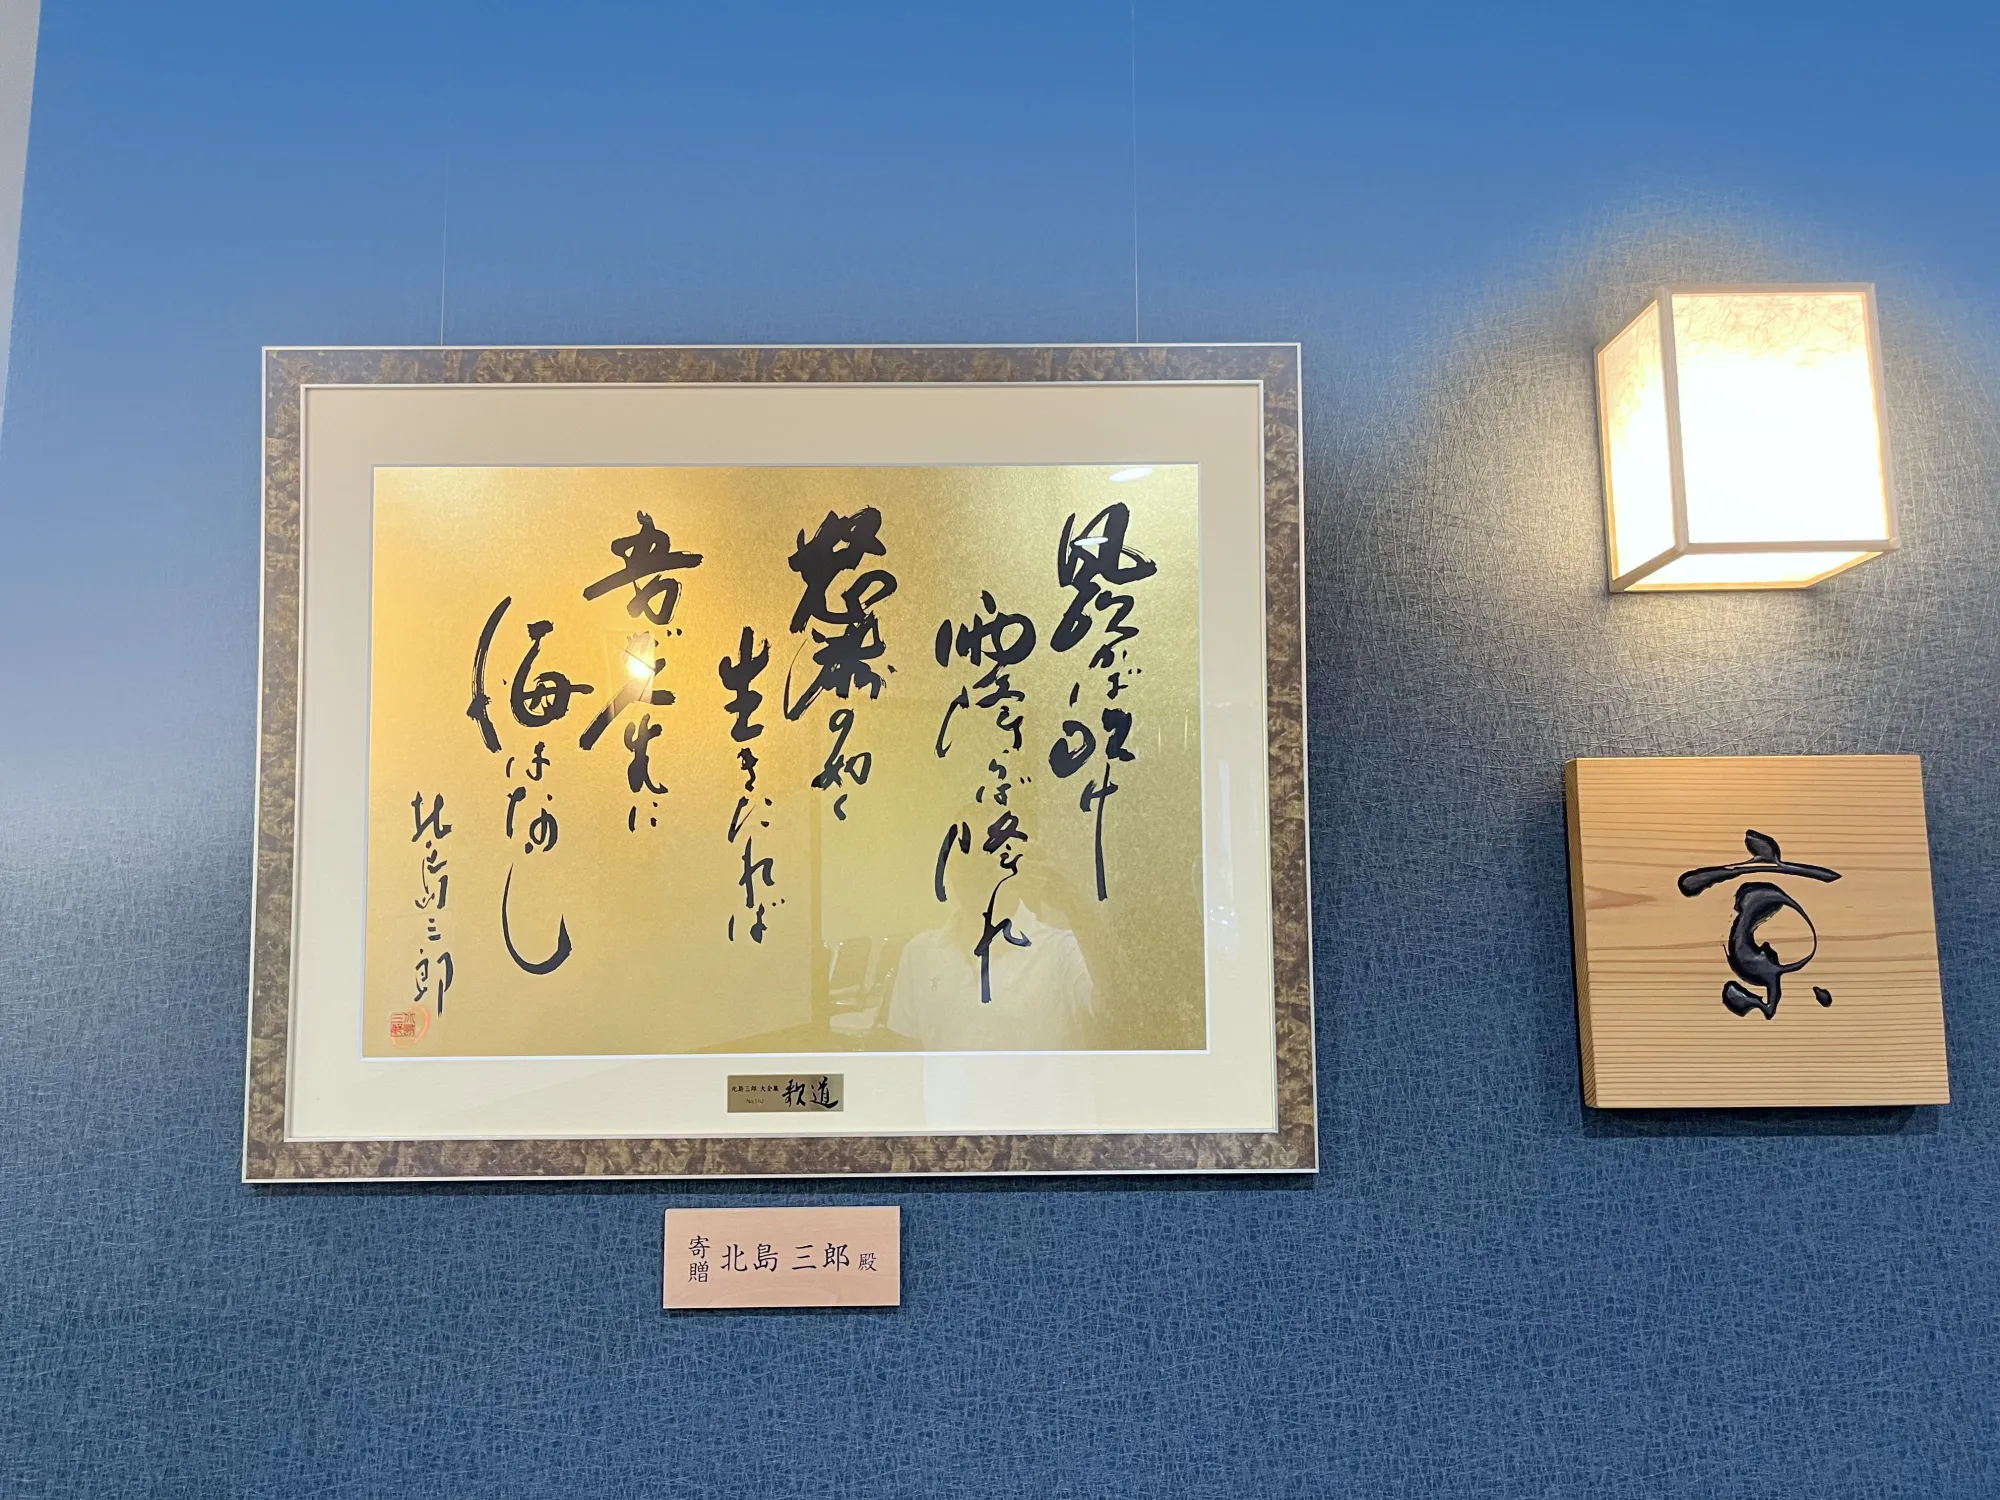 風吹かば吹け
雨降らば降れ
怒濤の如く
生きたれば
吾が人生に
悔はなし
北島三郎
北島三郎 大全集
歌道
寄贈 北島 三郎 殿
京